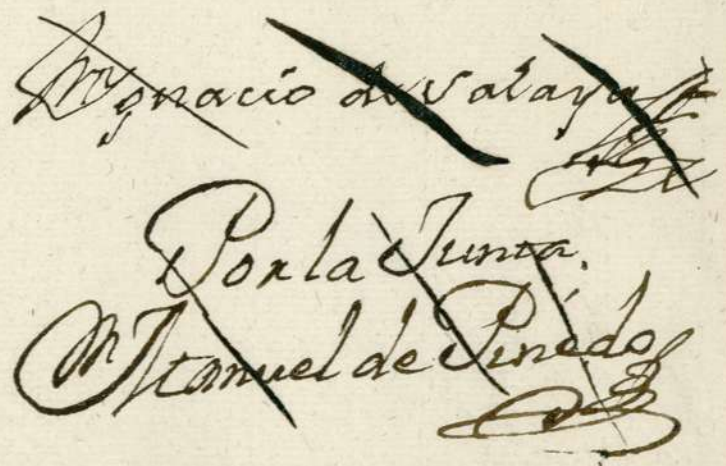 Ygnacio de Salaya
Por la Junta.
Manuel de Pinedo